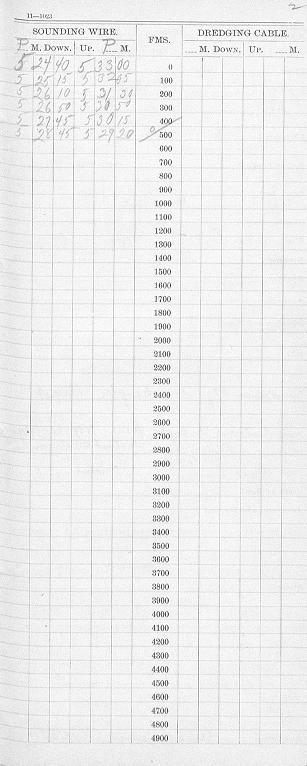 2
11—1023
SOUNDING WIRE. FMS. DREDGING CABLE.
P. M. DOWN. UP. P. M. .... M. DOWN. UP. .... M.
5 24 40 5 33 00 0
5 25 15 5 32 45 100
5 26 10 5 31 30 200
5 26 50 5 30 50 300
5 27 45 5 30 15 400
5 28 45 5 29 20 500
600
700
800
900
1000
1100
1200
1300
1400
1500
1600
1700
1800
1900
2000
2100
2200
2300
2400
2500
2600
2700
2800
2900
3000
3100
3200
3300
3400
3500
3600
3700
3800
3900
4000
4100
4200
4300
4400
4500
4600
4700
4800
4900